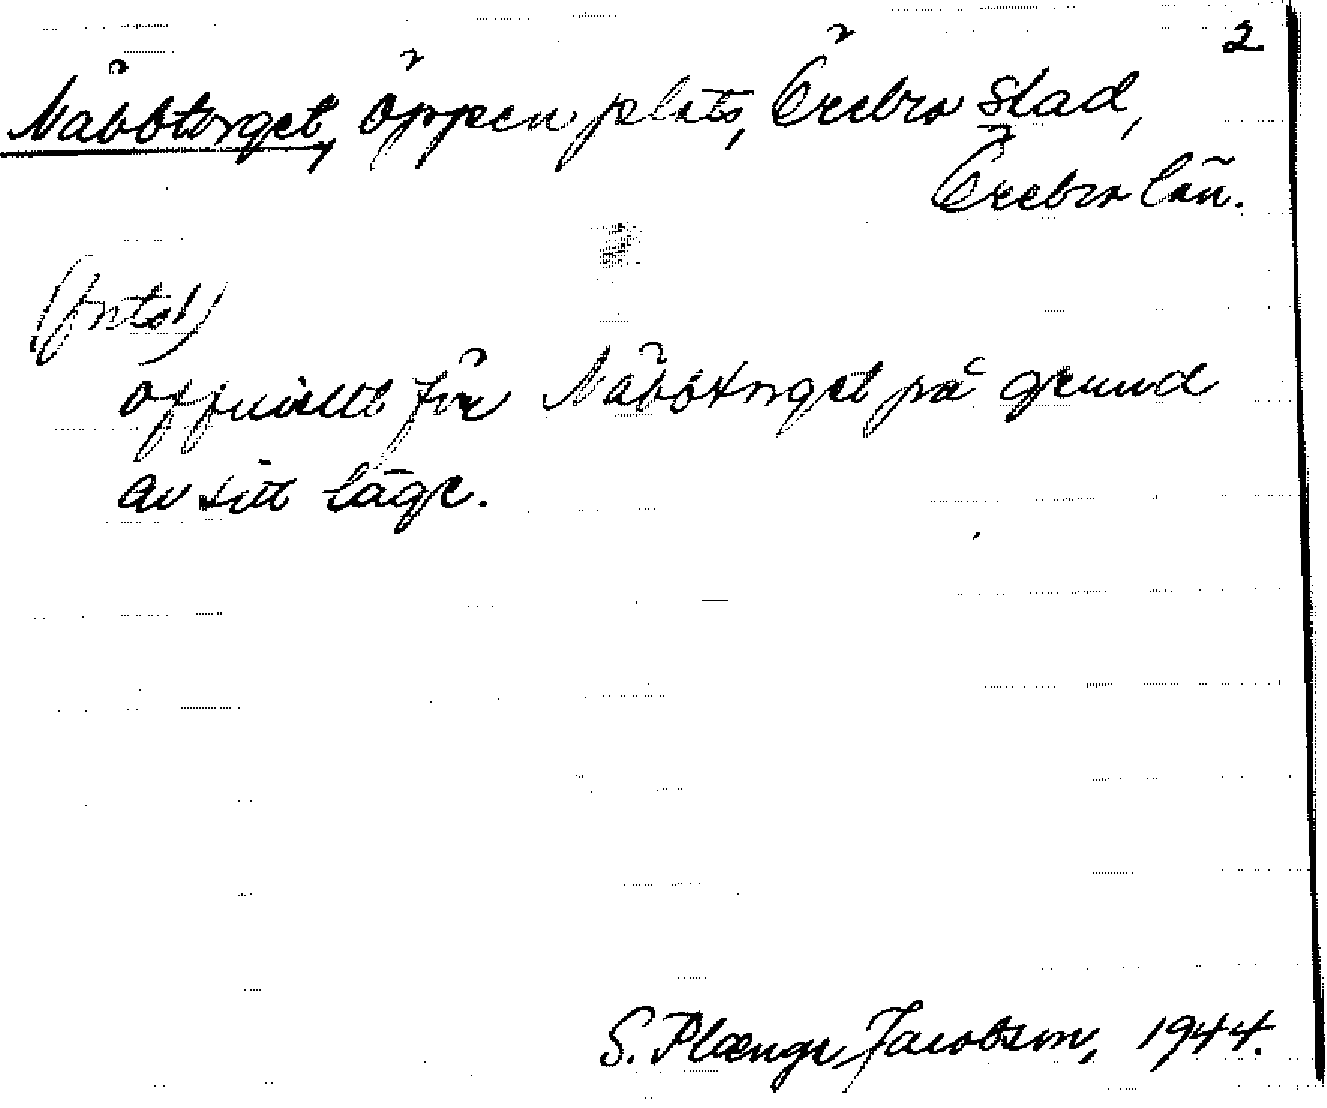 2
Näbbtorget, öppen plats, Örebro stad,
Örebro län.
(forts)
officiellt för Näbbtorget på grund
av sitt läge.
S. Plænge Jacobson, 1944.